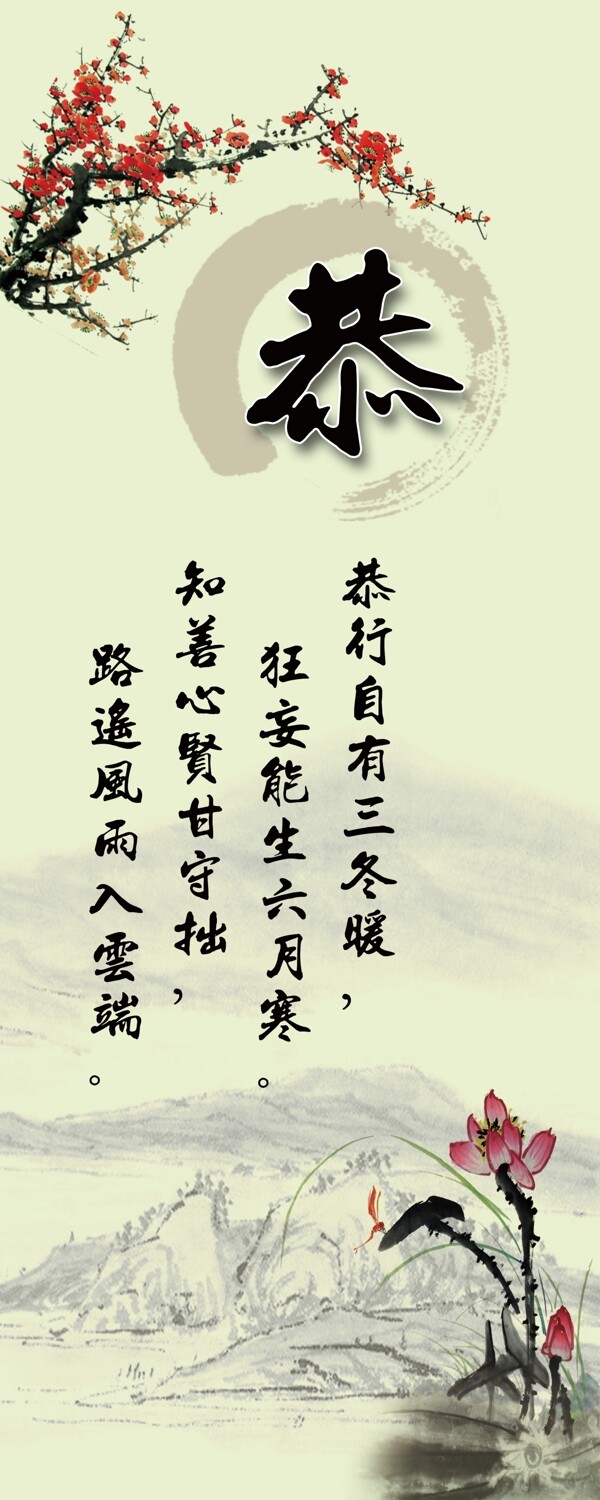 恭
恭行自有三冬暖，
狂妄能生六月寒。
知善心賢甘守拙，
路遙風雨入雲端。